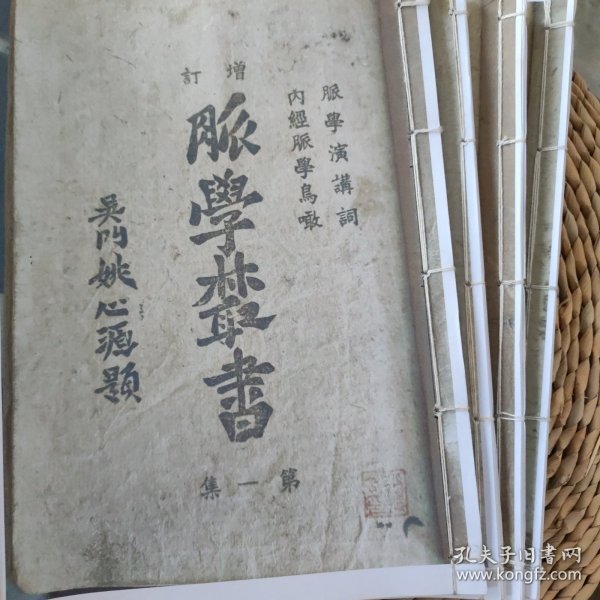 增訂
脈學演講詞
內經脈學鳥瞰
脈學叢書
吳門姚心源題
第一集
孔夫子旧书网
www.kongfz.com